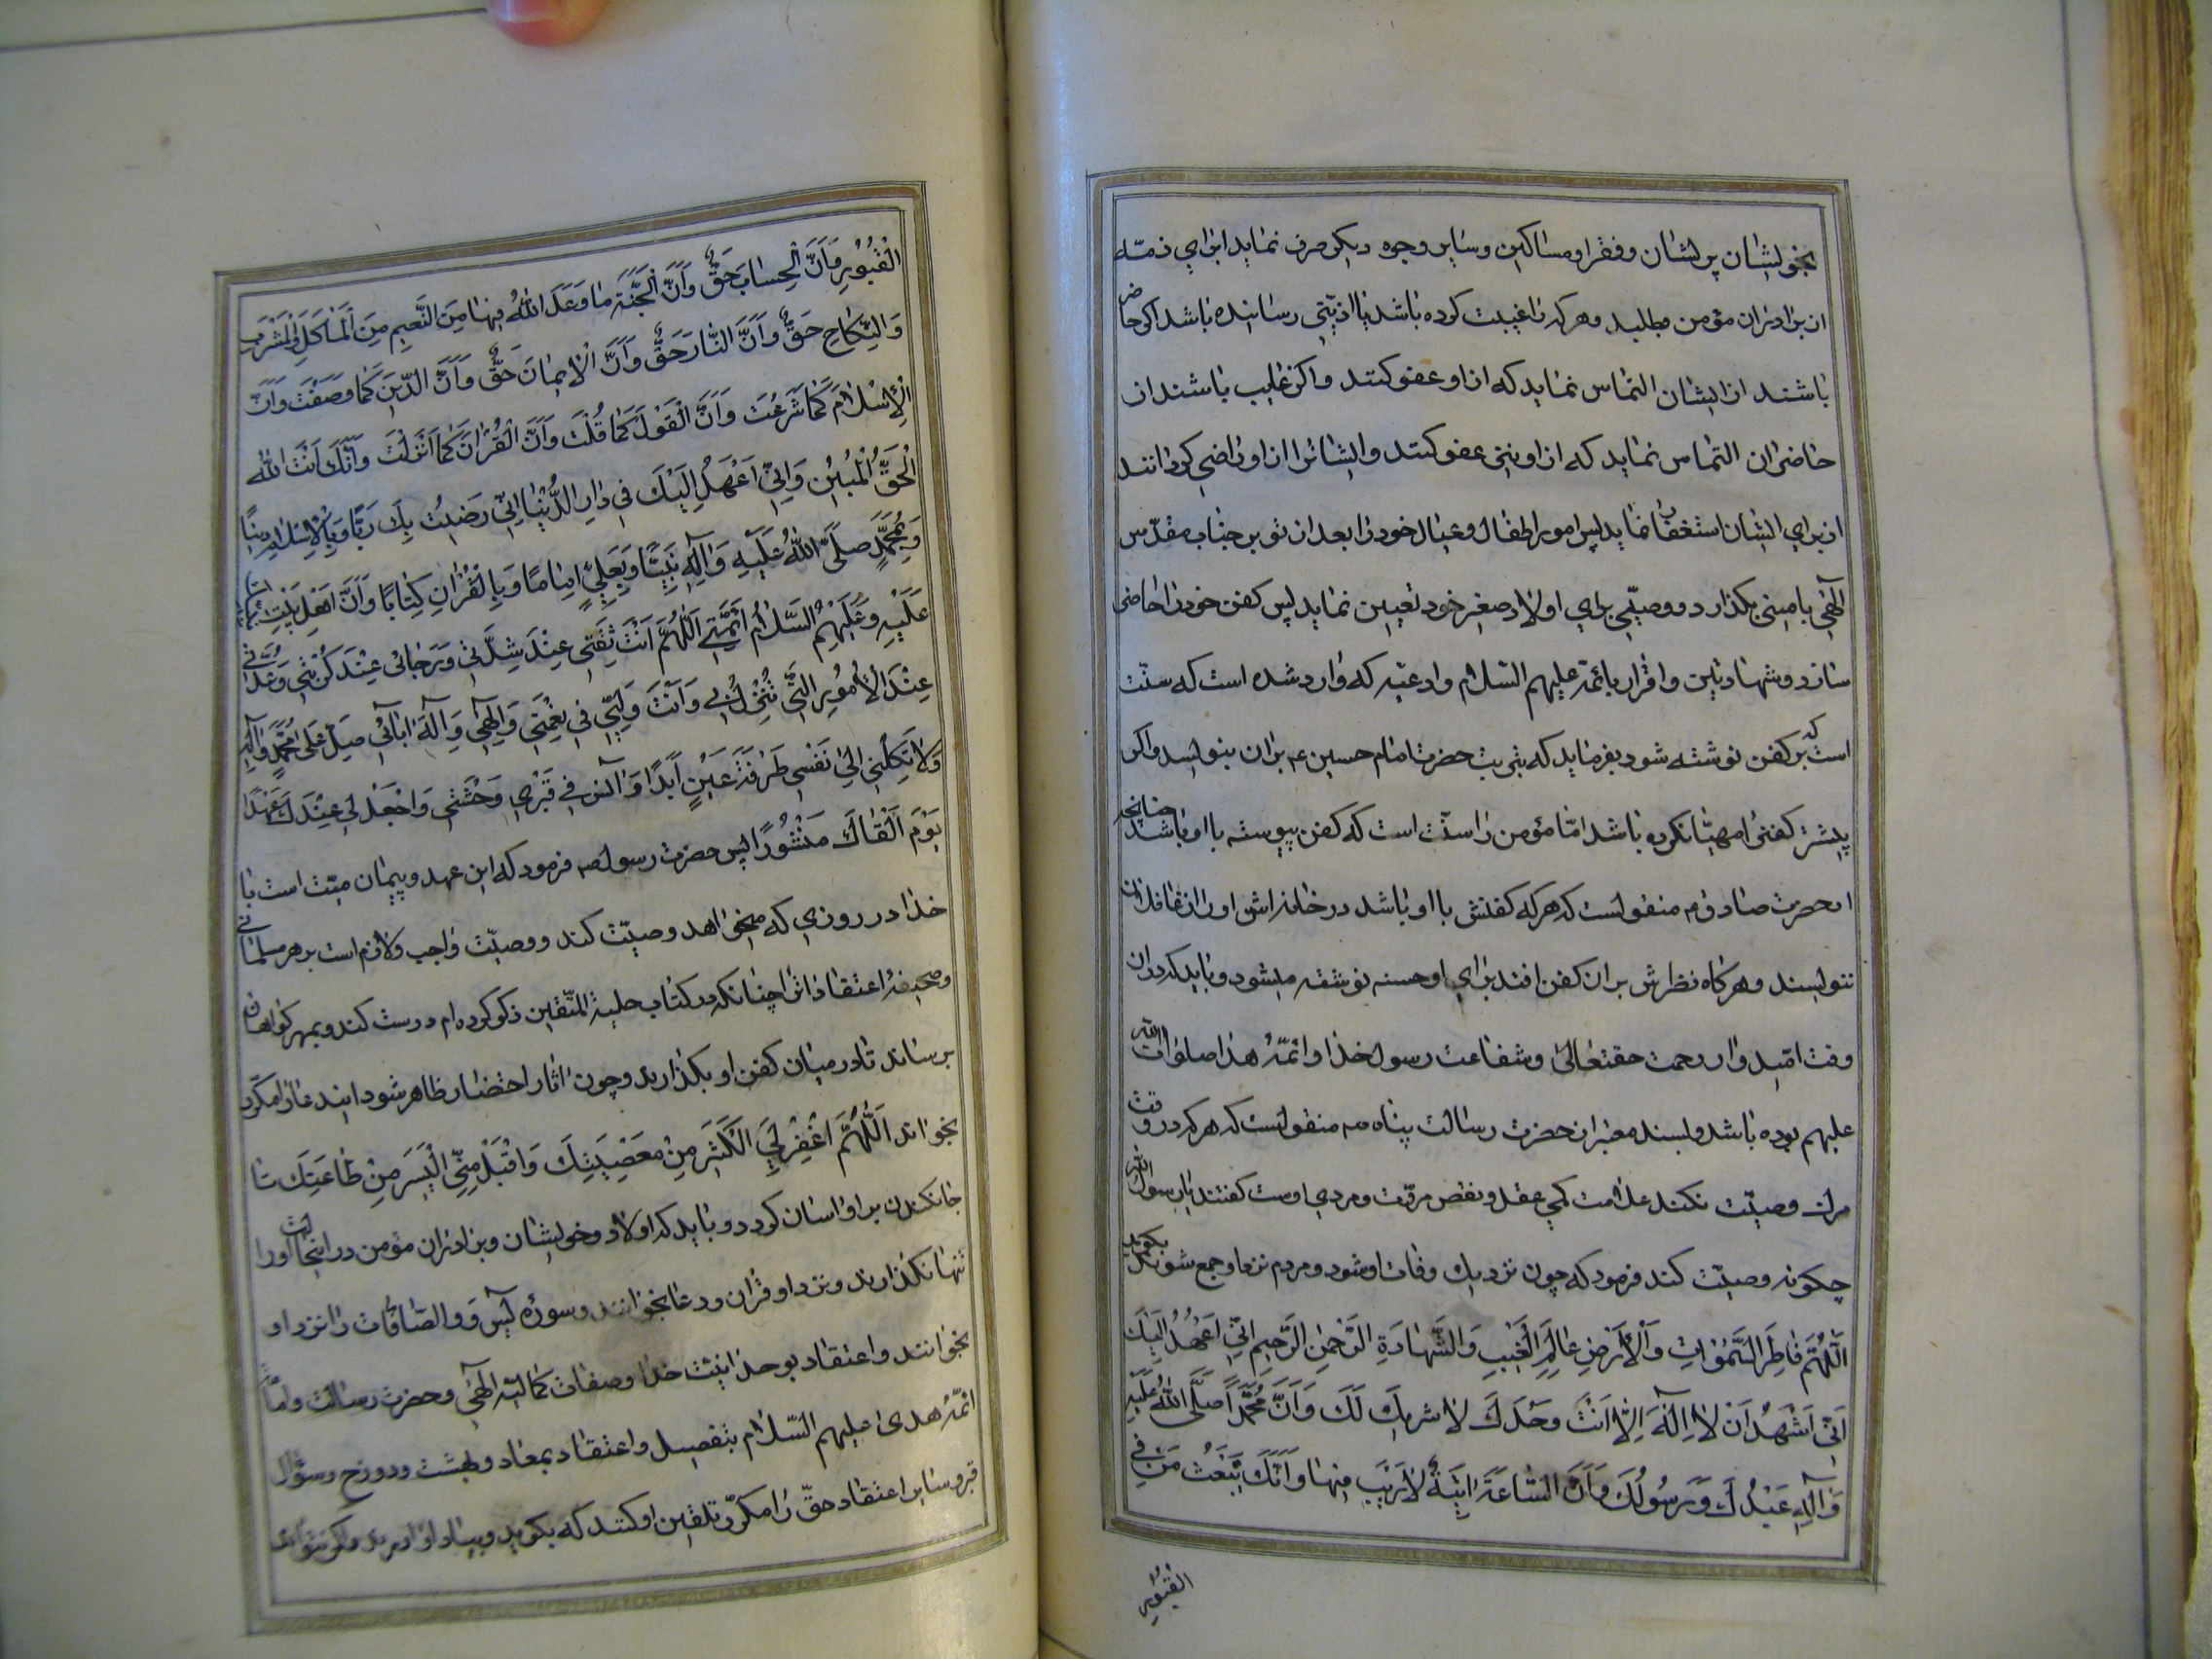 بخویشان پریشان و فقرا و مساکین و سایر وجوه دیگر صرف نماید ابرای ذمّه
از برادران مؤمن بطلبد و هر که را غیبت کرده باشد یا اذیّتی رسانیده باشد اگر حاضر
باشند از ایشان التماس نماید که از او عفو کنند و اگر غایب باشند از
حاضران التماس نماید که از او نیز عفو کنند و ایشانرا از او راضی کردانند
از برای ایشان استغفار نماید پس امور اطفال و عیال خود را بعد از توبر جناب مقدّس
الهی بامینی بگذارد و وصیّی برای اولاد صغیر خود تعیین نماید پس کفن خود را حاضر
سازد و شهادتین و اقرار بائمّه علیهم السّلام و ادعیّه که وارد شده است که سنّت
است که بر کفن نوشته شود بفرماید که بتربت حضرت امام حسین ع بران بنویسد و اگر
پیشتر کفنرا مهیّا نکرده باشد امّا مؤمن را سنّت است که کفن پیوسته با او باشد چنانچه
از حضرت صادق م منقولست که هر که کفنش با او باشد در خانه اش او را از غافلان
ننویسند و هر کاه نظرش بران کفن افتد برای او حسنه نوشته میشود و باید که در ان
وقت امّیدوار رحمت حقتعالی و شفاعت رسول خدا و ائمّهٔ هدا صلوات الله
علیهم بوده باشد و بسند معتبر از حضرت رسالت پناه ص منقولست که هر که در وقت
مرک وصیّت نکند علامت کمی عقل و نقص مروّت و مردی اوست کفتند یا رسول الله
چکونه وصیّت کند فرمود که چون نزدیک وفات او شود و مردم نزد او جمع شوند بکوید
اَللّٰهُمَّ فَاطِرَ السَّمٰوَاتِ وَالْاَرْضِ عَالِمَ الْغَيْبِ وَالشَّهَادَةِ الرَّحْمٰنَ الرَّحِيمَ اِنّي اَعْهَدُ اِلَيْكَ
اَنّي اَشْهَدُ اَنْ لَا اِلٰهَ اِلَّا اَنْتَ وَحْدَكَ لَا شَرِيكَ لَكَ وَاَنَّ مُحَمَّدًا صَلَّى اللّٰهُ عَلَيْهِ
وَآلِهِ عَبْدُكَ وَرَسُولُكَ وَاَنَّ السَّاعَةَ اٰتِيَةٌ لَا رَيْبَ فِيهَا وَاَنَّكَ تَبْعَثُ مَنْ فِي
القبور
الْقُبُورِ وَاَنَّ الْحِسَابَ حَقٌّ وَاَنَّ الْجَنَّةَ وَمَا وَعَدَ اللّٰهُ فِيهَا مِنَ النَّعِيمِ مِنَ الْمَأْكَلِ وَالْمَشْرَبِ
وَالنِّكَاحِ حَقٌّ وَاَنَّ النَّارَ حَقٌّ وَاَنَّ الْاِيمَانَ حَقٌّ وَاَنَّ الدِّينَ كَمَا وَصَفْتَ وَاَنَّ
الْاِسْلَامَ كَمَا شَرَعْتَ وَاَنَّ الْقَوْلَ كَمَا قُلْتَ وَاَنَّ الْقُرْاٰنَ كَمَا اَنْزَلْتَ وَاَنَّكَ اَنْتَ اللّٰهُ
الْحَقُّ الْمُبِينُ وَاِنِّي اَعْهَدُ اِلَيْكَ فِي دَارِ الدُّنْيَا اِنّي رَضِيتُ بِكَ رَبًّا وَبِالْاِسْلَامِ دِينًا
وَبِمُحَمَّدٍ صَلَّى اللّٰهُ عَلَيْهِ وَآلِهِ نَبِيًّا وَبِعَلِيٍّ اِمَامًا وَبِالْقُرْاٰنِ كِتَابًا وَاَنَّ اَهْلَ بَيْتِ نَبِيِّكَ
عَلَيْهِ وَعَلَيْهِمُ السَّلَامُ اَئِمَّتِي اَللّٰهُمَّ اَنْتَ ثِقَتِي عِنْدَ شِدَّتِي وَرَجَائِي عِنْدَ كُرْبَتِي وَعُدَّتِي
عِنْدَ الْاُمُورِ الَّتِي تُنْزَلُ بِي وَاَنْتَ وَلِيِّي فِي نِعْمَتِي وَاِلٰهِي وَاِلٰهَ اٰبَائِي صَلِّ عَلَى مُحَمَّدٍ وَآلِهِ
وَلَا تَكِلْنِي اِلَى نَفْسِي طَرْفَةَ عَيْنٍ اَبَدًا وَاٰنِسْ فِي قَبْرِي وَحْشَتِي وَاجْعَلْ لِي عِنْدَكَ عَهْدًا
يَوْمَ اَلْقَاكَ مَنْشُورًا پس حضرت رسول ص فرمود که این عهد و پیمان میّت است با
خدا در روزی که میخواهد وصیّت کند و وصیّت واجب و لازم است بر هر مسلمانی
و صحیفهٔ اعتقاداترا چنانکه در کتاب حلیة المتّقین ذکر کرده ام درست کند و بمهر کواهان
برساند تا در میان کفن او بکذارند و چون اثار احتضار ظاهر شود ایند عا را مکرّر
بخواند اَللّٰهُمَّ اغْفِرْ لِيَ الْكَثِيرَ مِنْ مَعْصِيَتِكَ وَاقْبَلْ مِنِّي الْيَسِيرَ مِنْ طَاعَتِكَ تا
جانکندن بر او اسان کردد و باید که اولاد و خویشان و برادران مؤمن در انحالت او را
تنها نکذارند و نزد او قران و دعا بخوانند و سورهٔ یٰس و والصّافّات را نزد او
بخوانند و اعتقاد بوحدانیّت خدا و صفات کمالیّهٔ الهی و حضرت رسالت و امامت
ائمّهٔ هدی علیهم السّلام بتفصیل و اعتقاد بمعاد و بهشت و دوزخ و سؤال
قبر و سایر اعتقاد حقّ را مکرّر تلقین او کنند که بکوید و بیاد او اورند و اکر نتواند